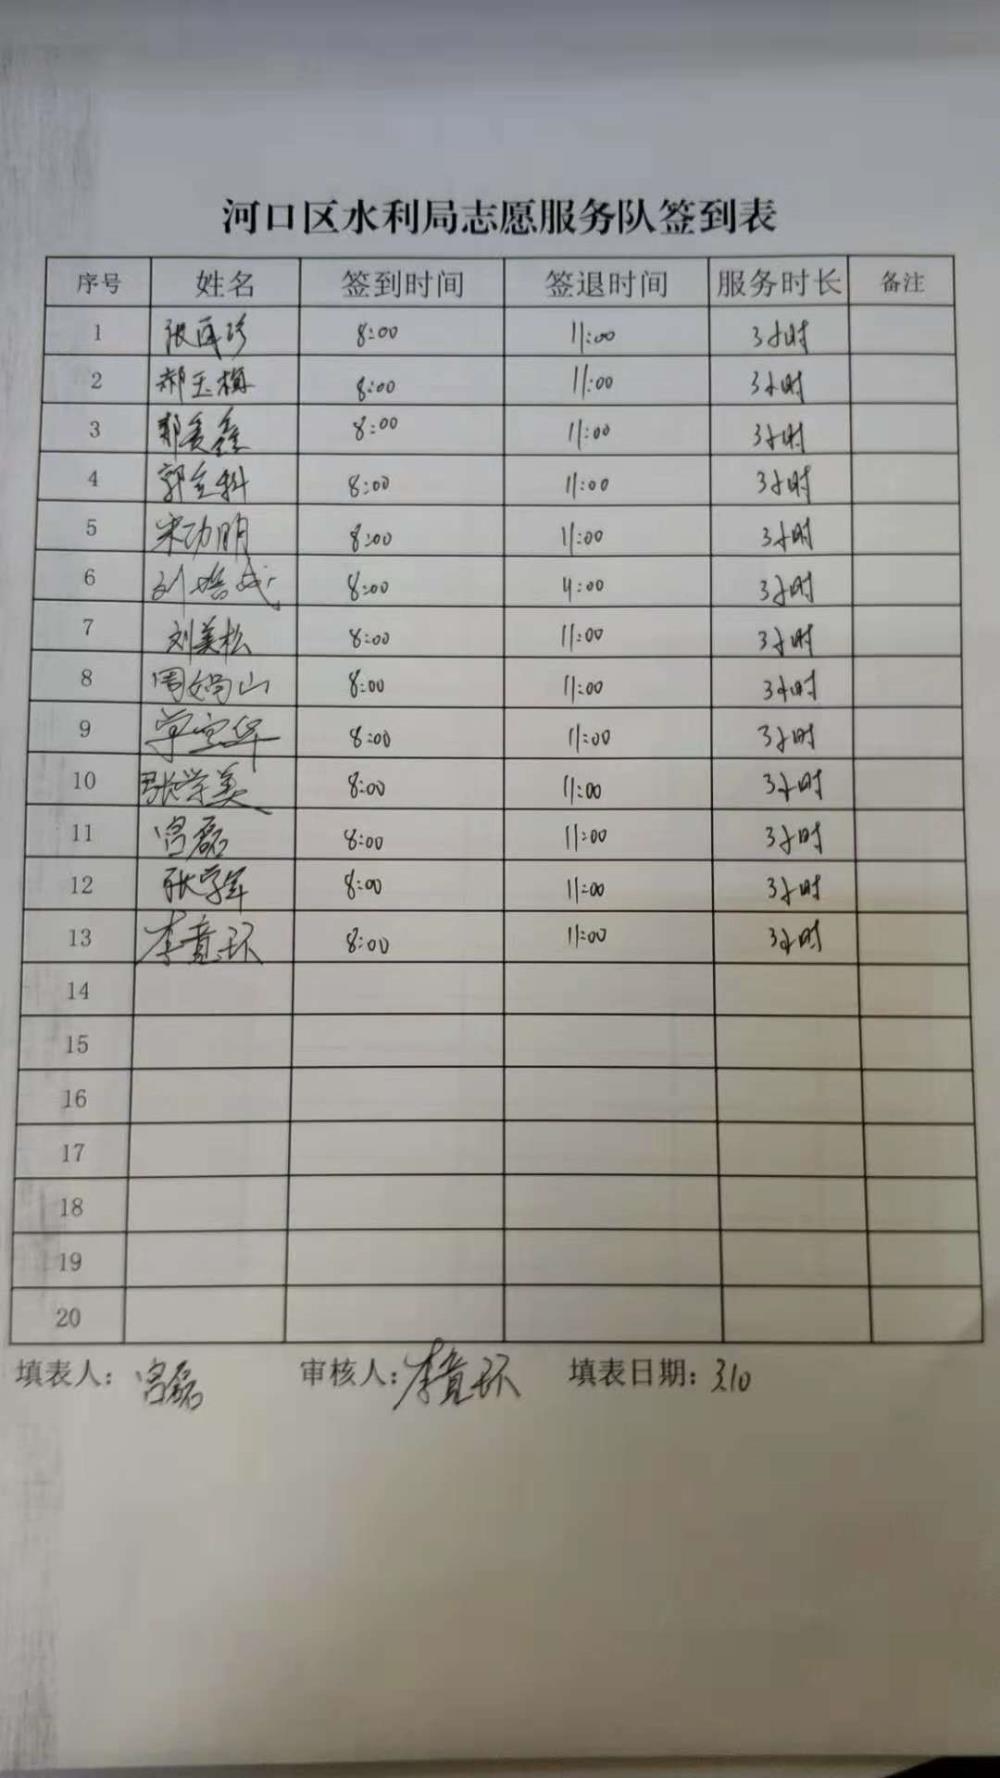 河口区水利局志愿服务队签到表
序号 姓名 签到时间 签退时间 服务时长 备注
1 8:00 11:00 3小时
2 郝玉梅 8:00 11:00 3小时
3 8:00 11:00 3小时
4 郭立科 8:00 11:00 3小时
5 宋功明 8:00 11:00 3小时
6 8:00 11:00 3小时
7 刘美松 8:00 11:00 3小时
8 8:00 11:00 3小时
9 8:00 11:00 3小时
10 张学美 8:00 11:00 3小时
11 宫磊 8:00 11:00 3小时
12 张学军 8:00 11:00 3小时
13 李竟环 8:00 11:00 3小时
14
15
16
17
18
19
20
填表人: 宫磊 审核人: 李竟环 填表日期: 3.10